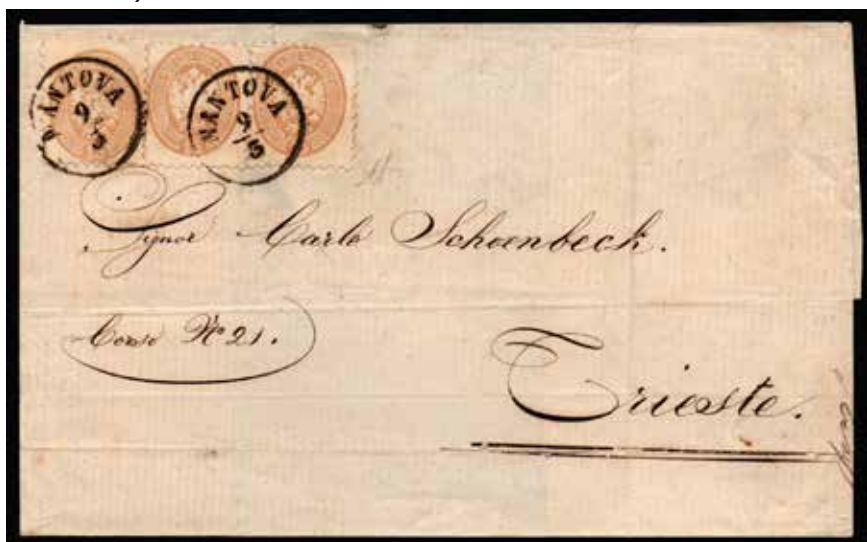 MANTOVA
9/5
MANTOVA
9/5
Signor Carlo Schoenbeck.
Corso No 21.
Trieste.